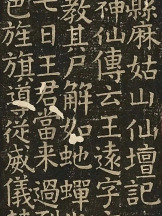 縣麻姑山仙壇記
神仙傳云王遠字
教其尸解如虵蟬
七日王君當来過
色旌旗導從威儀